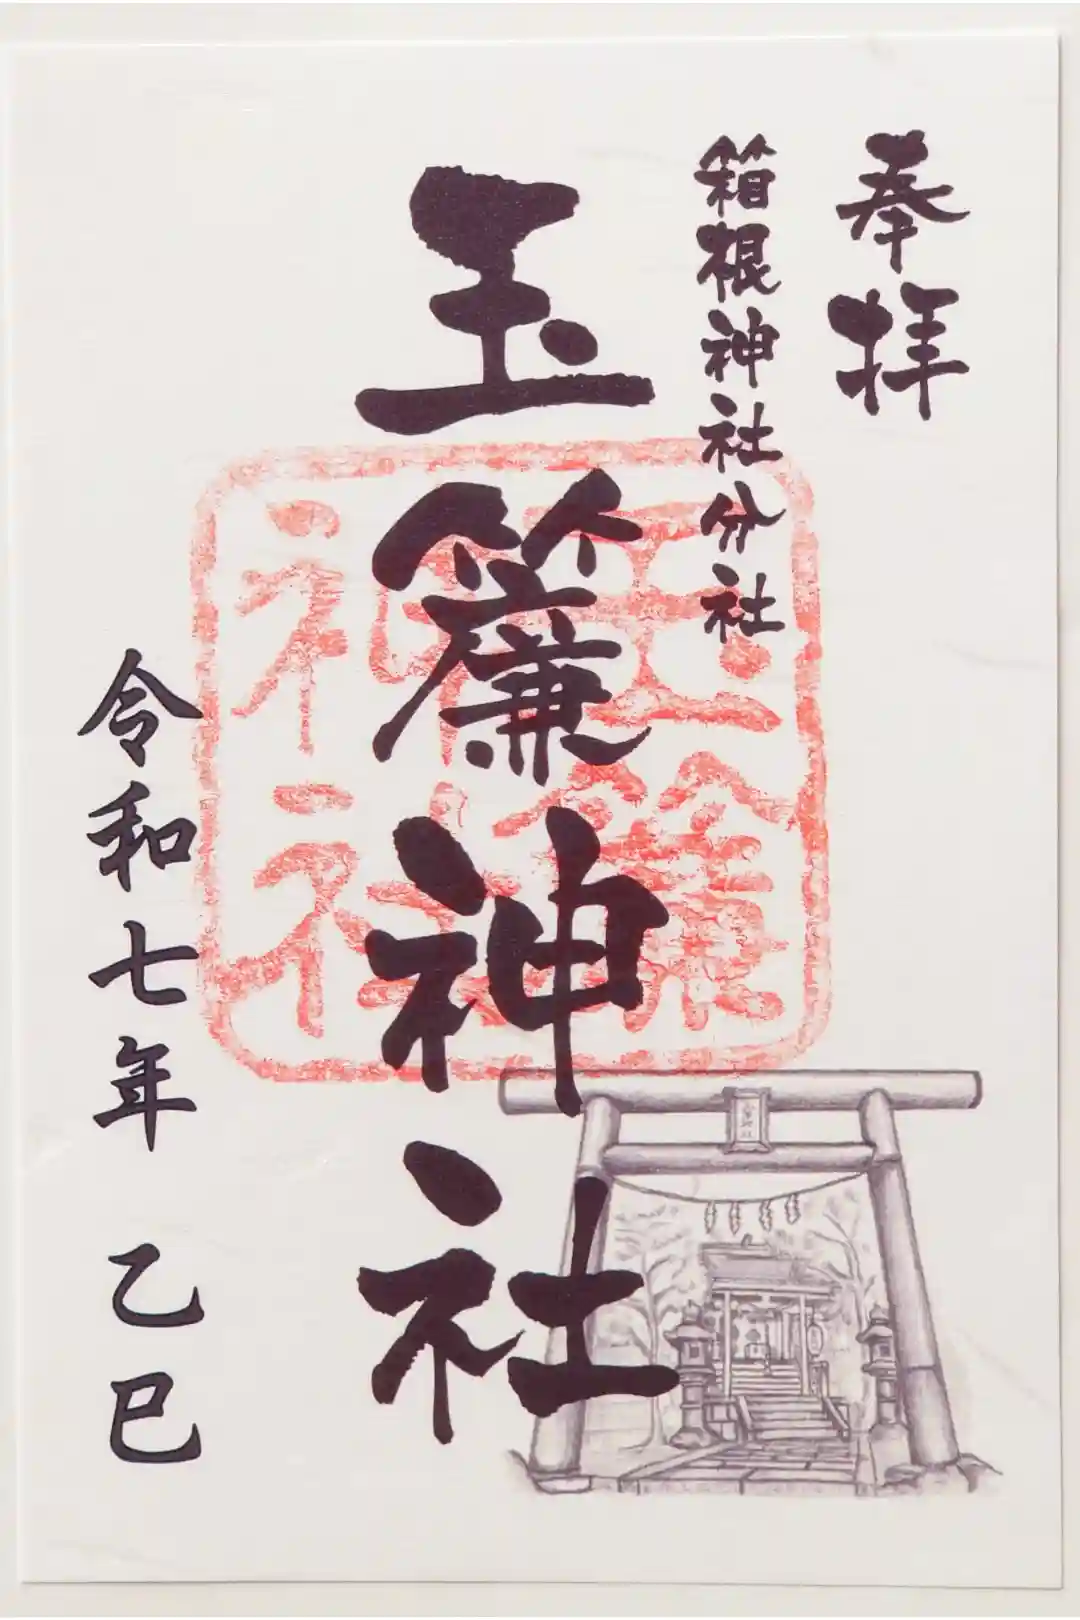 奉拝
箱根神社分社
玉簾神社
玉簾神社
令和七年 乙巳